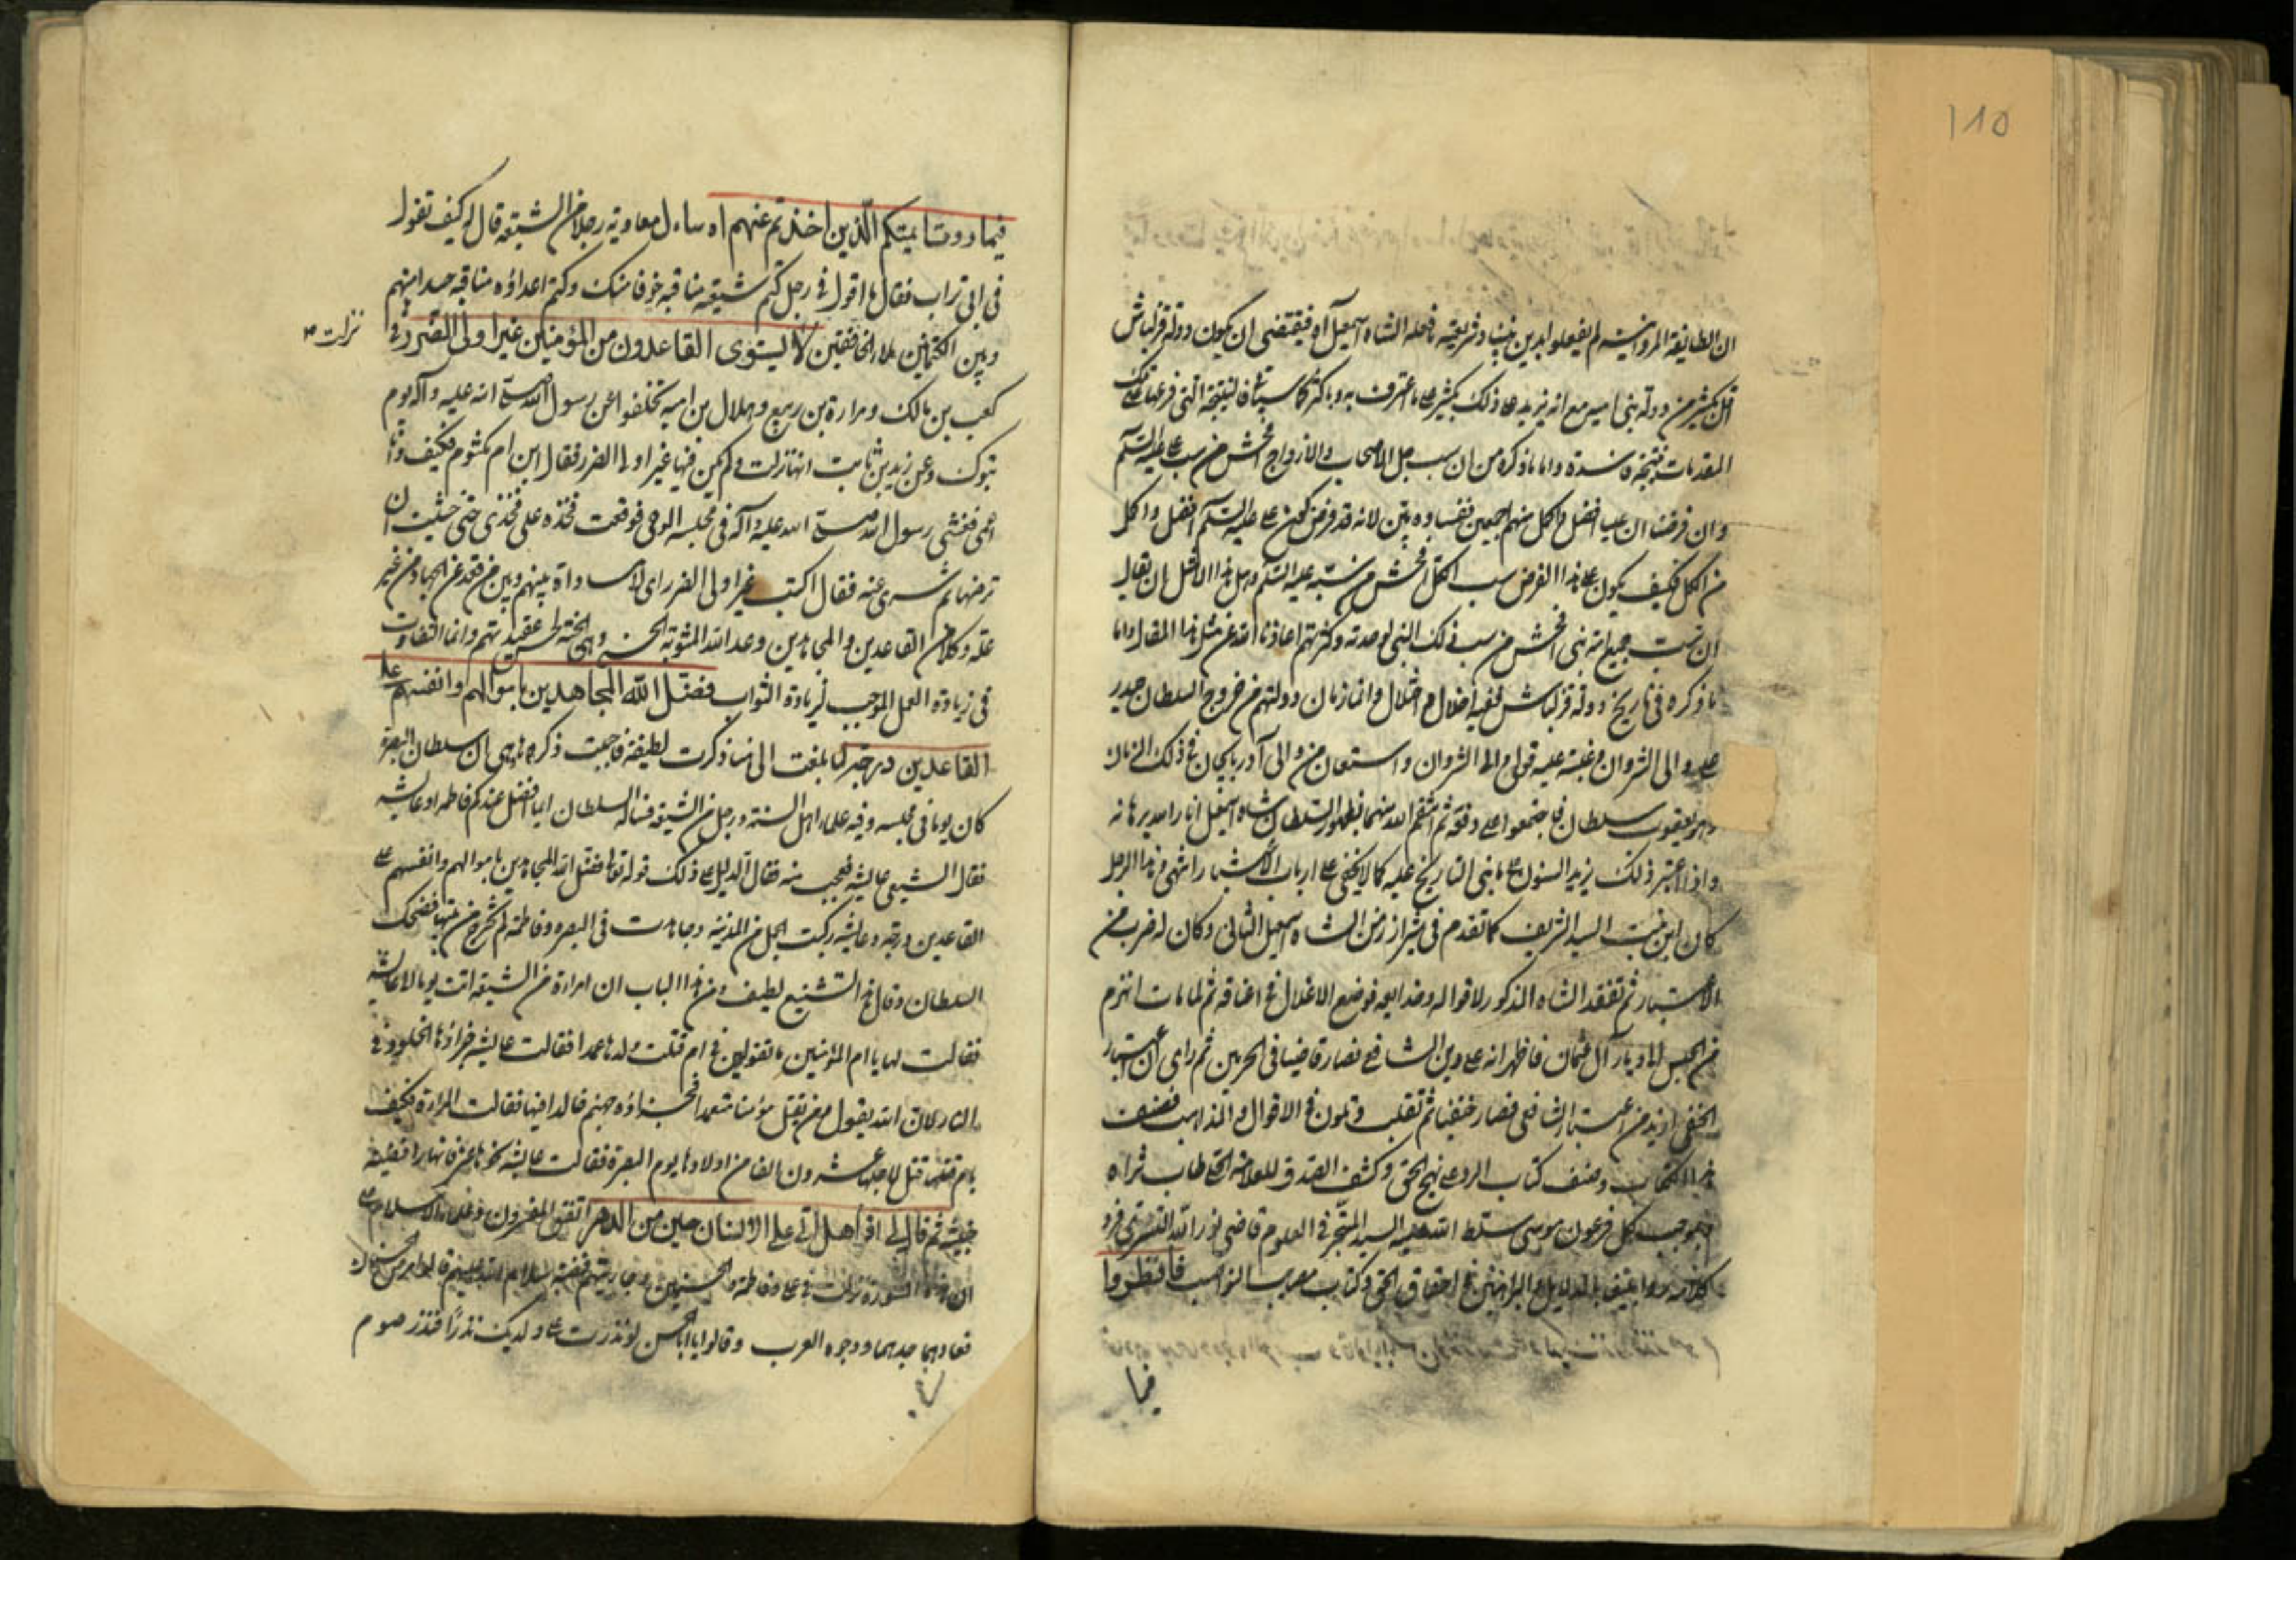 ١٨٥
ان الطايفة المروانيه لم يفعلوا بدين نبينا وشريعته ما فعله الشاه اسمعيل آه فيقتضى ان يكون دولة قزلباش
اقل بكثير من دولة بنى اميه مع انه يزيد على ذلك بكثير على ما اعترف به وباكثر كما سيتلى فالنتيجة التى فرعها على تلك
المقدمات نتيجة فاسدة واما ما ذكره من ان سب جل الاصحاب والازواج افحش من سب على عليه السلم
وان فرضنا ان عليا افضل واكمل منهم اجمعين ففساده بين لانه قد فرض كون على عليه السلم افضل واكمل
من الكل فكيف يكون على هذا الفرض سب الكل افحش من سبه عليه السلم وهل هذا الا مثل ان يقال
ان سب جميع امة نبى افحش من سب ذلك النبى لوحدته وكثرتهم اعاذنا الله عن مثل هذا المقال واما
ما ذكره فى تاريخ دولة قزلباش ففيه اخلال واختلال وانما زمان دولتهم من خروج السلطان حيدر
على والى الشروان وغلبته عليه والى الشروان واستعان من والى آذربايجان فى ذلك الزمان
وهو يعقوب سلطان فاجتمعوا على دفعه ثم انتقم الله منهما بظهور السلطان شاه اسمعيل انار الله برهانه
واذا اعتبر ذلك يزيد السنون على ما بنى التاريخ عليه كما لا يخفى على ارباب الاشتهار انتهى وهذا الرجل
كان ابن بنت السيد الشريف كما تقدم فى شيراز زمن الشاه اسمعيل الثانى وكان له ضرب من
الاشتهار ثم تفقد الشاه المذكور لاقواله وخدايعه فوضع الاغلال فى اعناقه ثم لما مات انهزم
من الحبس الى ديار آل عثمان فاظهر انه على دين الشافعى فصار قاضيا فى الحرمين ثم راى ان اعتبار
الحنفى ازيد من اعتبار الشافعى فصار حنفيا ثم تقلب وتلون فى الاقوال والمذاهب فصنف
هذا الكتاب وصنف كتاب الرد على نهج الحق وكشف الصدق للعلامة الحلى طاب ثراه
فبموجب لكل فرعون موسى سلط الله عليه السيد المتبحر فى العلوم قاضى نور الله التسترى فرد
كلامه ردا عنيفا بالدلايل والبراهين فى احقاق الحق وكتاب مصايب النواصب فانظروا
فيما
فيما رو وشايعتكم الذين اخذتم عنهم اه ساءل معاويه رجلا من الشيعة قال له كيف تقول
فى ابى تراب فقال ما اقول فى رجل كتم شيعته مناقبه خوفا منك وكتم اعداؤه مناقبه حسدا منهم
وبين الكتمانين ملاء الخافقين لا يستوى القاعدون من المؤمنين غير اولى الضرر فى
نزلت
كعب بن مالك ومرارة بن ربيع وهلال بن اميه تخلفوا عن رسول الله صلى الله عليه وآله يوم
تبوك وعن زيد بن ثابت انها نزلت ولم يكن فيها غير اولى الضرر فقال ابن ام مكتوم فكيف وانا
اعمى فغشى رسول الله صلى الله عليه وآله فى مجلسه الوحى فوقعت فخذه على فخذى حتى خشيت ان
ترضها ثم سرى عنه فقال اكتب غير اولى الضرر اى لا مساواة بينهم وبين من قعد عن الجهاد من غير
علة وكلا من القاعدين والمجاهدين وعد الله المثوبة الحسنى وهى الجنة لحسن عقيدتهم وانما التفاوت
فى زيادة العمل الموجب لزيادة الثواب فضل الله المجاهدين باموالهم وانفسهم على
القاعدين درجة لما بلغت الى هنا ذكرت لطيفة فاجبت ذكرها وهى ان سلطان البصرة
كان يوما فى مجلسه وفيه علماء اهل السنة ورجل من الشيعة فساله السلطان ايما افضل عندكم فاطمه او عايشه
فقال الشيعى عايشه فعجب منه فقال الدليل على ذلك قوله تعالى فضل الله المجاهدين باموالهم وانفسهم على
القاعدين درجه وعايشه ركبت الجمل من المدينة وجاهدت فى البصره وفاطمه لم تخرج من بيتها فضحك
السلطان وقال هذا التشنيع لطيف ومن هذا الباب ان امراة من الشيعه اتت يوما الى عايشه
فقالت لها يا ام المؤمنين ما تقولين فى ام قتلت ولدها عمدا فقالت عايشه جزاؤها الخلود فى
النار لان الله يقول ومن يقتل مؤمنا متعمدا فجزاؤه جهنم خالدا فيها فقالت المراءة فكيف
بام قتل لاجلها عشرون الفا من اولادها يوم البصرة فقالت عايشه نحوها عنى فانها رافضية
خبيثه ثم قال لى اقرأ هل اتى على الانسان حين من الدهر اتفق المفسرون من علماء الاسلام على
ان هذه السورة نزلت فى على وفاطمة والحسنين وجاريتهم فضه سلام الله عليهم قالوا مرض الحسنان
فعادهما جدهما ووجوه العرب وقالوا يا ابا الحسن لو نذرت على ولديك نذرا فنذر صوم